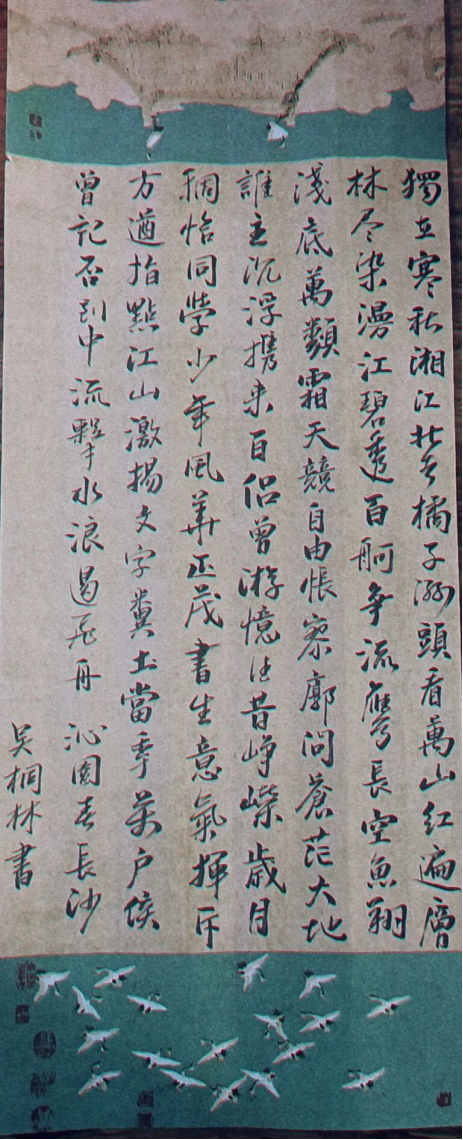 獨立寒秋湘江北去橘子洲頭看萬山紅遍層
林尽染漫江碧透百舸争流鷹長空魚翔
淺底萬類霜天競自由悵寥廓問蒼茫大地
誰主沉浮携来百侣曾游憶往昔崢嶸歲月
稠恰同學少年風華正茂書生意氣揮斥
方遒指點江山激揚文字糞土當年萬户侯
曾記否到中流擊水浪遏飛舟 沁園春長沙
吴桐林書